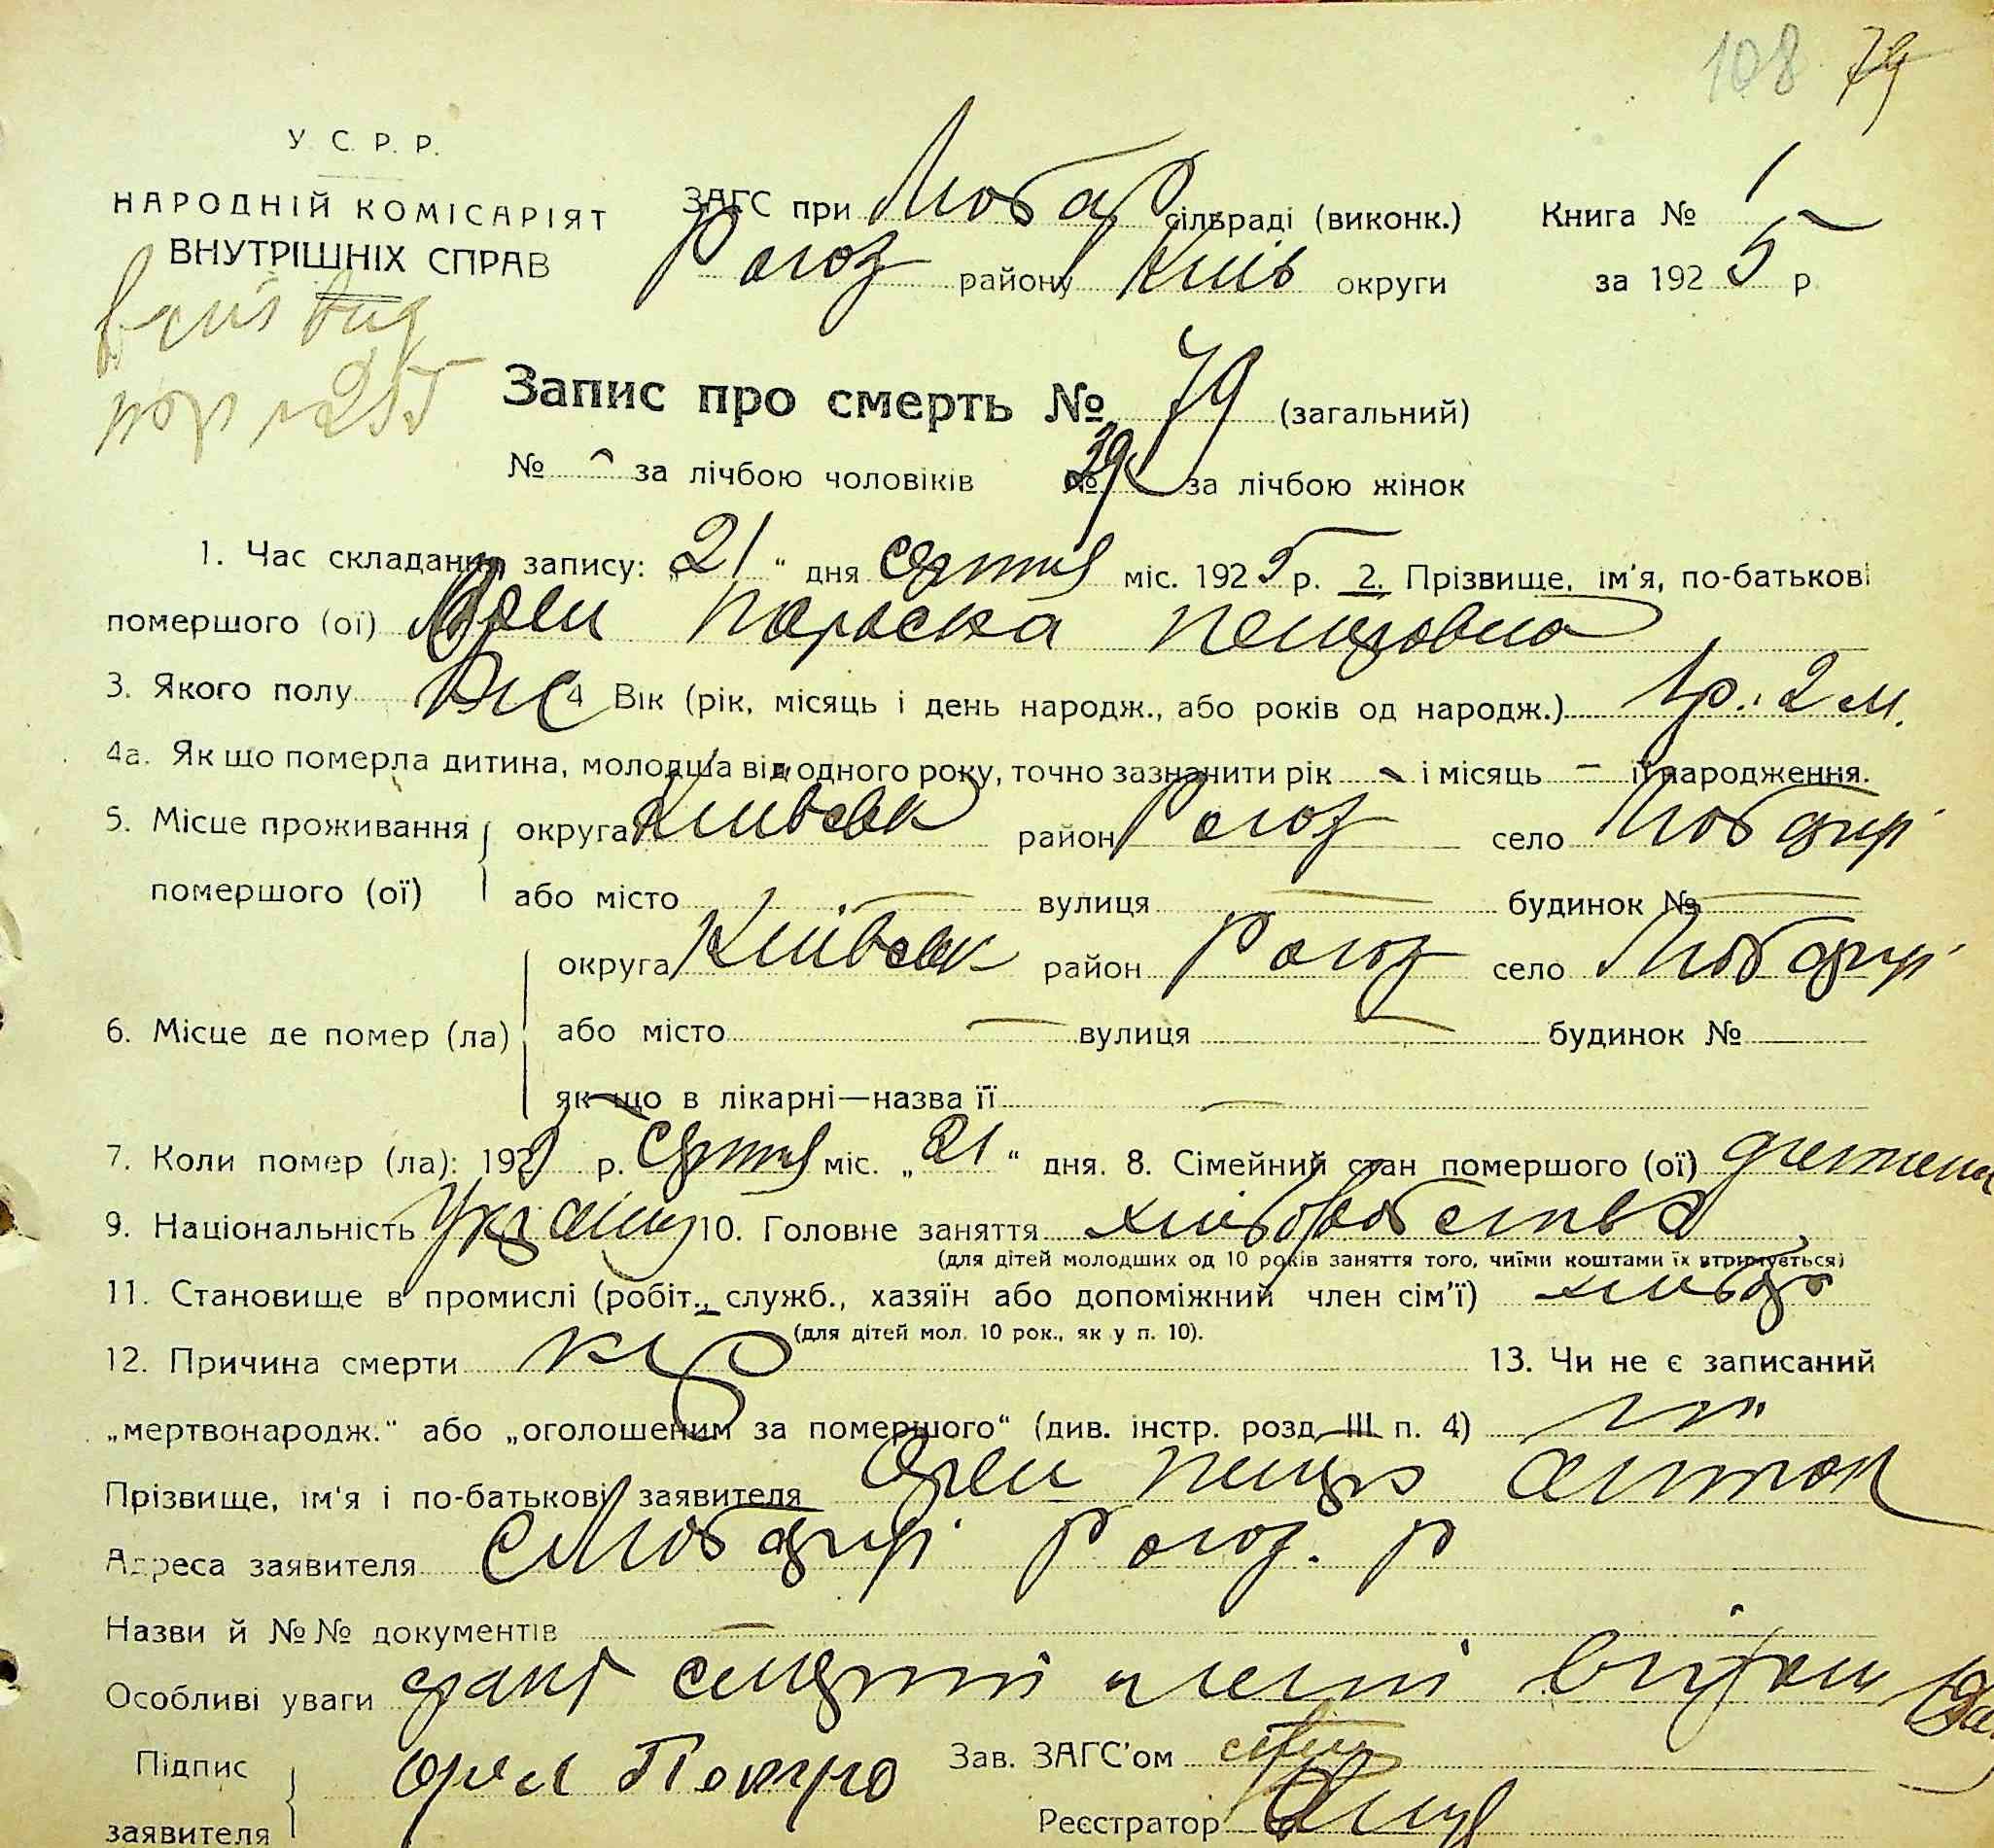 108 79
У. С. Р. Р.
НАРОДНІЙ КОМІСАРІЯТ
ВНУТРІШНІХ СПРАВ
ЗАГС при Любар сільраді (виконк.) Книга № 1
Рогоз району Київ округи за 1925 р
Запис про смерть № 79 (загальний)
№ за лічбою чоловіків № 39 за лічбою жінок
1. Час складання запису: „21“ дня серпня міс. 1925 р. 2. Прізвище, ім'я, по-батькові
помершого (ої) Орел Параска Петровна
3. Якого полу Жіс 4 Вік (рік, місяць і день народж., або років од народж.) 1 р. 2 м.
4а. Як що померла дитина, молодша від одного року, точно зазначити рік - і місяць - її народження.
5. Місце проживання округа Київськ район Рогоз село Любарці
помершого (ої) або місто — вулиця — будинок № —
округа Київськ район Рогоз село Любарці
6. Місце де помер (ла) або місто — вулиця — будинок №
як що в лікарні—назва її —
7. Коли помер (ла): 1925 р. серпня міс. „21“ дня. 8. Сімейний стан помершого (ої) дитина
9. Національність Україн 10. Головне заняття хліборобства
(для дітей молодших од 10 років заняття того, чиїми коштами їх втримується)
11. Становище в промислі (робіт., служб., хазяїн або допоміжний член сім'ї) хлібор
(для дітей мол. 10 рок., як у п. 10).
12. Причина смерти кір 13. Чи не є записаний
„мертвонародж.“ або „оголошеним за помершого“ (див. інстр. розд. III п. 4) ні
Прізвище, ім'я і по-батькові заявителя Орел Петро Антон
Адреса заявителя с Любарці Рогоз. р
Назви й №№ документів —
Особливі уваги факт смерти
Підпис Орел Петро Зав. ЗАГС'ом
заявителя Реєстратор